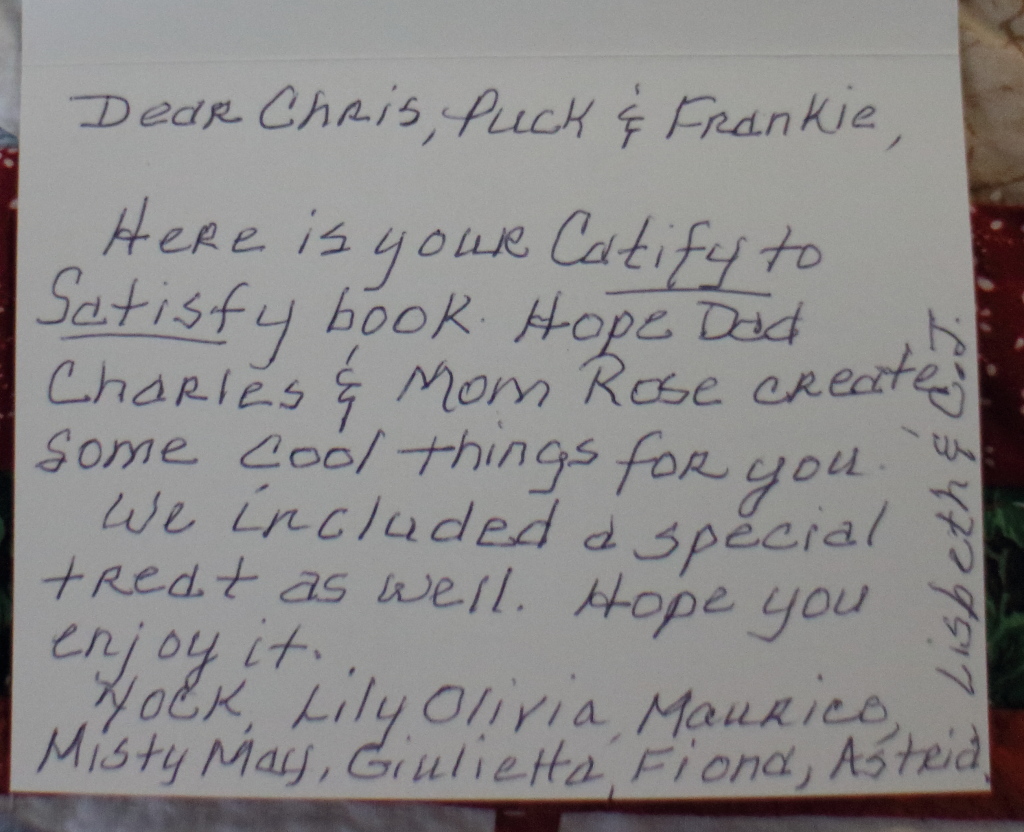 Dear Chris, Puck & Frankie,
Here is your Catify to
Satisfy book. Hope Dad
Charles & Mom Rose create
some cool things for you.
We included a special
treat as well. Hope you
enjoy it.
Yock, Lily Olivia, Maurice,
Misty May, Giulietta, Fiona, Astrid,
Lisbeth & C.J.